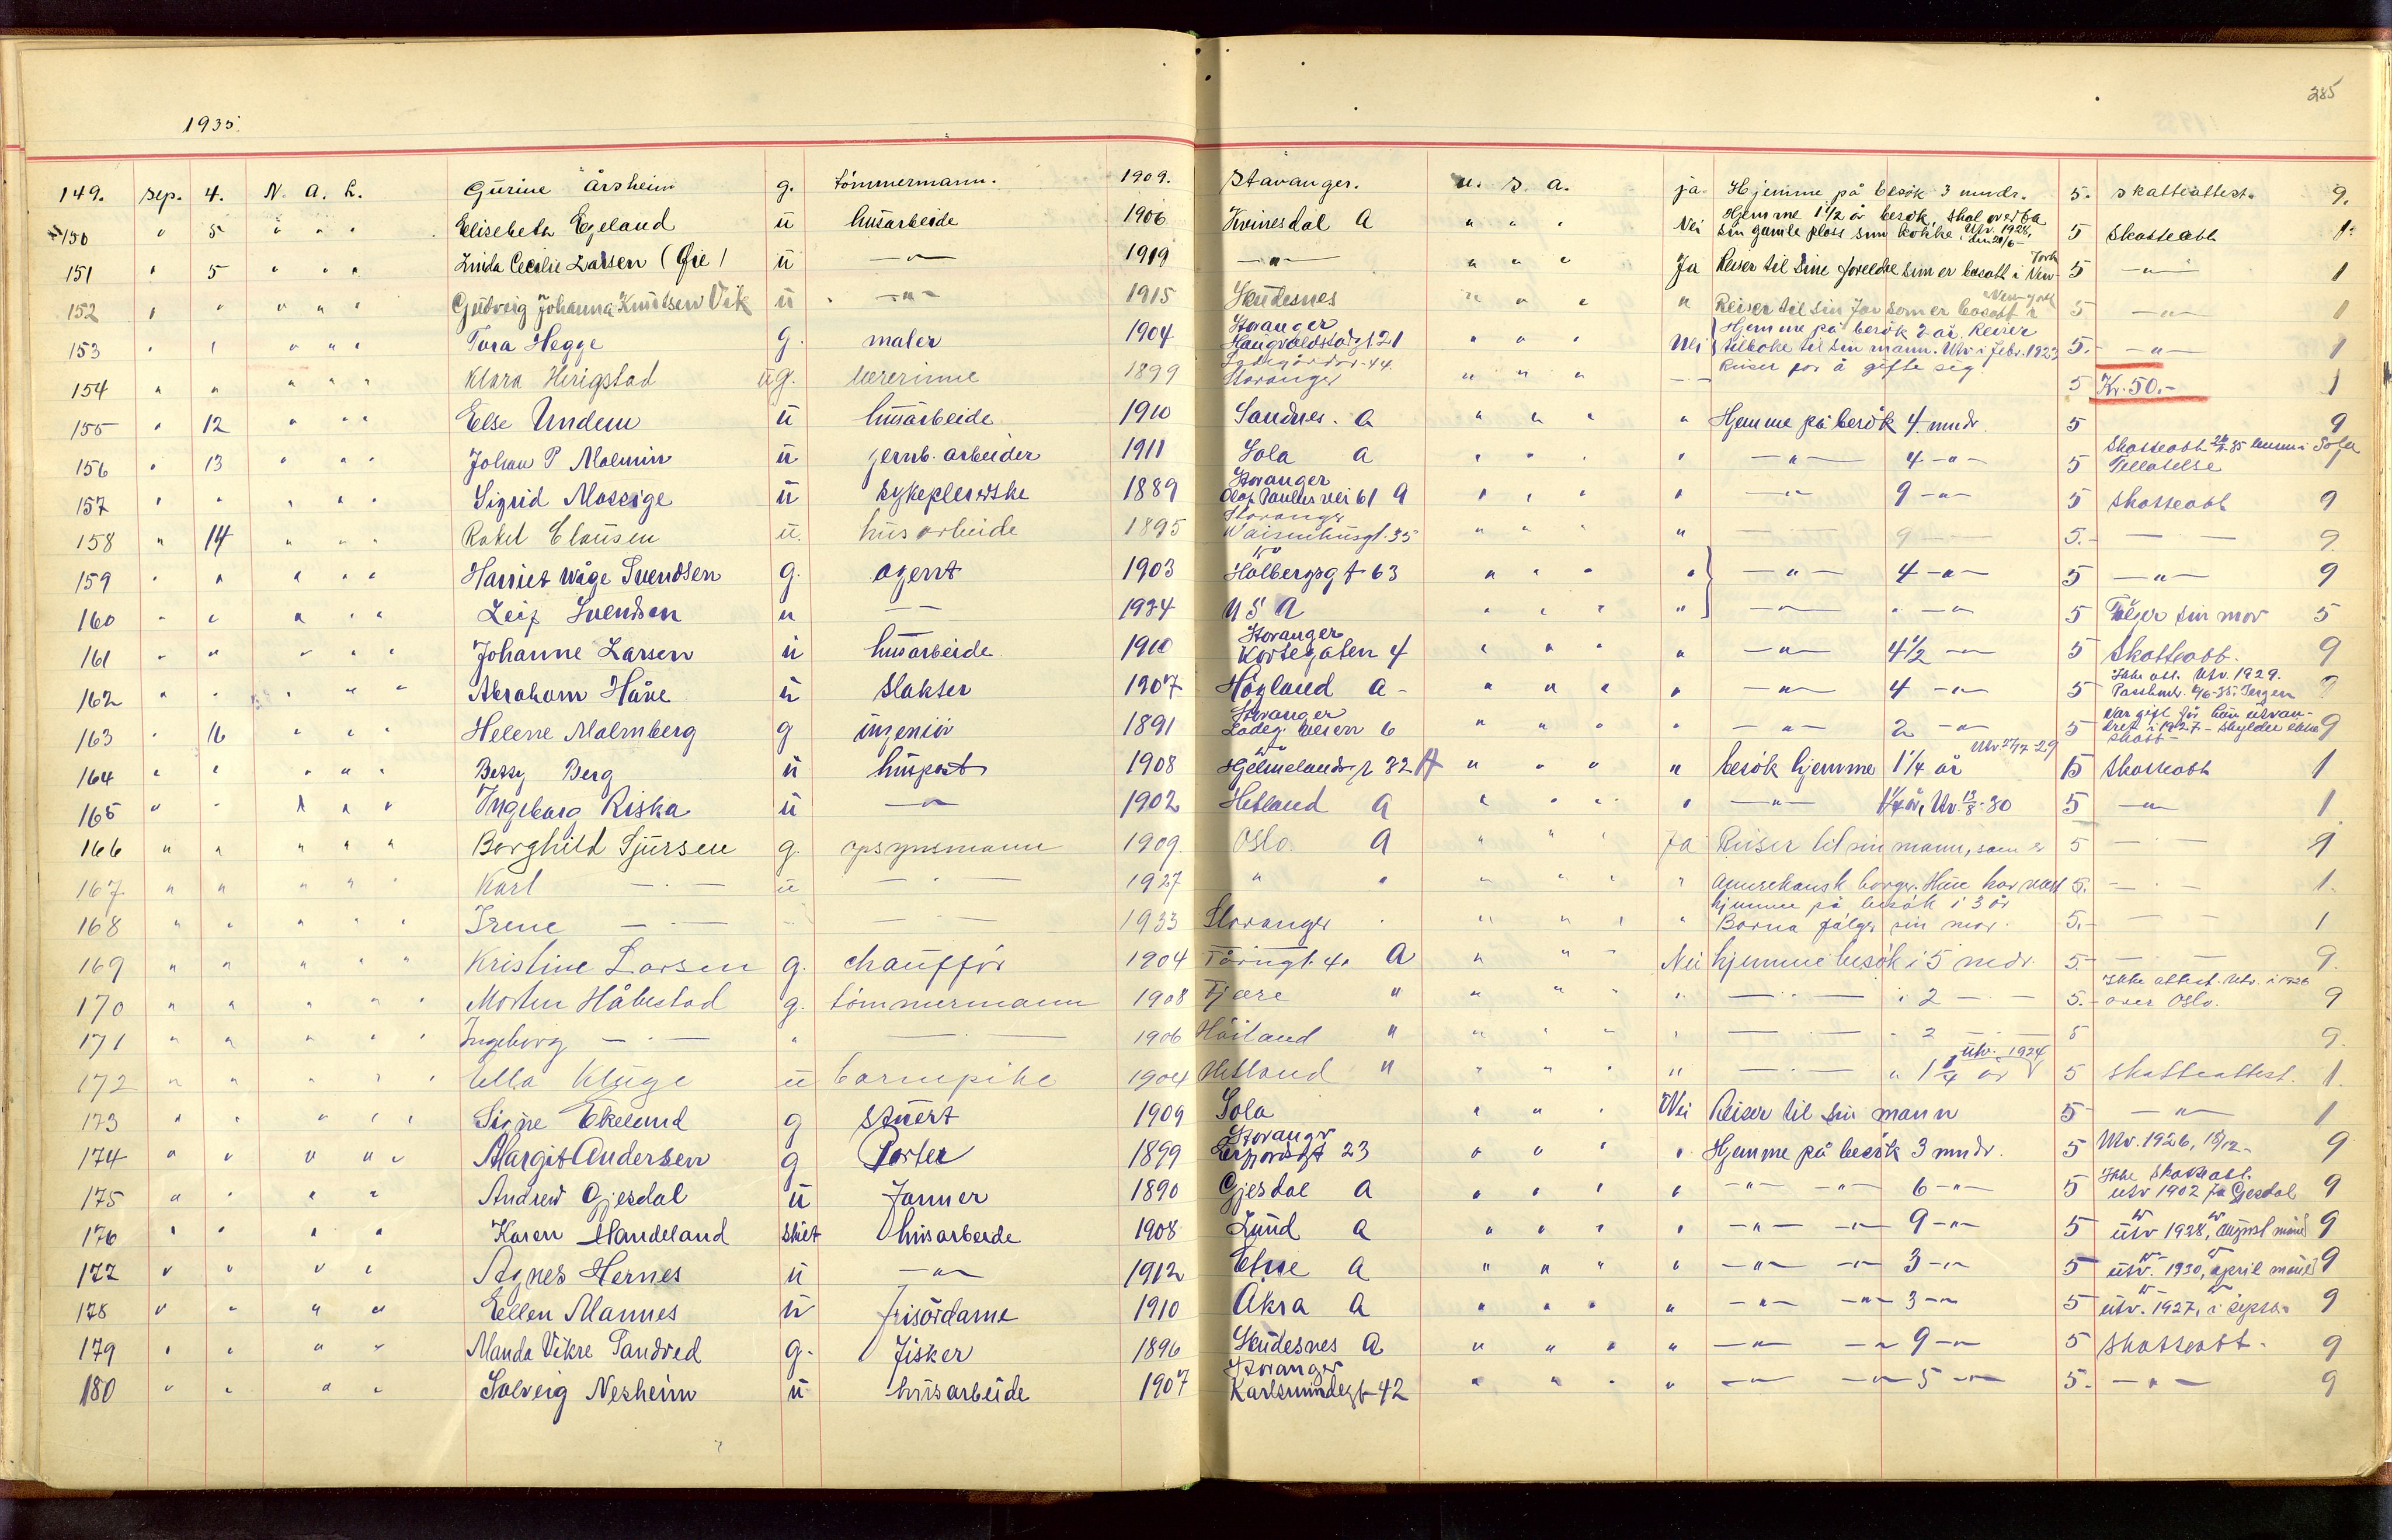 285
1935
149. sep. 4. N. A. L. Gurine Årsheim g. tømmermann. 1909. Stavanger. U. S. A. ja Hjemme på besøk 3 mndr. 5. skatteattest. 9.
150 " 5 " " " Elisebeth Egeland ü husarbeide 1906 Kvinesdal A " " " Nei Hjemme 1 1/2 år besøk, skal overta sin gamle plass som kokke. Utv. 1928, den 20/6 5 Skatteatt 1.
151 " 5 " " " Linda Cecilie Larsen (Øie) ü —"— 1919 —"— " " " Ja Reiser til sine foreldre som er bosatt i New York 5 —"— 1
152 " " " " " Gudveig Johanna Knutsen Vik ü —"— 1915 Skudesnes " " " " Reiser til sin far som er bosatt i New-York 5 —"— 1
153 " " " " " Tora Hegge g. maler 1904 Stavanger Haugvaldstadgt 21 " " " Nei Hjemme på besøk 2 år. Reiser tilbake til sin mann. Utv. i febr. 1923 5. —"— 1
154 " " " " " Klara Herigstad ug. lærerinne 1899 Stavanger 44. " " " — Reiser for å gifte seg 5 Kr. 50.- 1
155 " 12 " " " Else Undem ü husarbeide 1910 Sandnes. A " " " " Hjemme på besøk 4 mndr. 5 9
156 " 13 " " " Johan P Malmin ü jernb. arbeider 1911 Sola A " " " " —"— 4 —"— 5 Skatteatt Sola Tillatelse 9
157 " " " " " Sigrid Mossige ü sykepleierske 1889 Stavanger Olaf Paulus vei 61 A " " " " —"— 9 —"— 5 Skatteatt 9
158 " 14 " " " Rakel Clausen ü. husarbeide 1895 Stavanger Vaisenhusgt. 35 " " " " — 9 — 5.- — — 9.
159 " " " " " Harriet Wåge Svendsen g. agent 1903 Holbergsgt 63 " " " " —"— 4 —"— 5 —"— 9
160 " " " " " Leif Svendsen u — — 1934 U S A " " " " —"— " —"— 5 Følger sin mor 5
161 " " " " " Johanne Larsen ü husarbeide 1910 Stavanger Kortegaten 4 " " " " —"— 4 1/2 —"— 5 Skatteatt. 9
162 " " " " " Abraham Håve ü slakter 1907 Høgland A - " " " " —"— 4 —"— 5 Ikke att. Utv. 1929. 9
163 " 16 " " " Helene Malmberg g ingeniør 1891 Stavanger Ladeg. veien 6 " " " " —"— 2 —"— 5 Var gift før hun utvandret i 1927 - skylder ikke skatt - 9
164 " " " " " Betsy Berg ü huspost 1908 Hjelmelandsgt 32 A " " " " besøk hjemme 1 1/4 år Utv 27/7 29 5 Skatteatt 1
165 " " " " " Ingeborg Riska ü —"— 1902 Hetland A " " " " —"— 1 1/4 år, Utv. 13/8-30 5 —"— 1
166 " " " " " Borghild Sjursen g. opsynsmann 1909. Oslo. A " " " Ja Reiser til sin mann, som er 5 — — 1
167 " " " " " Karl — " — ü — " — 1927 " " " " " " amerikansk borger. Hun har vært 5. — " — 1.
168 " " " " " Irene — " — — — " — 1933 Stavanger " " " " " hjemme på besøk i 3 år Barna følger sin mor. 5.- — — 1
169 " " " " " Kristine Larsen g. chauffør 1904 Tårngt. 4. A " " " Nei hjemme besøk i 5 mdr. 5.- — — 9.
170 " " " " " Morten Håbestad g. tømmermann 1908 Fjære " " " " " — " — i 2 — " — 5.- Ikke attest. Utv. i 1926 over Oslo. 9
171 " " " " " Ingeborg — " — " — " — 1906 Høiland " " " " " — " — " 2 — " — 5 9.
172 " " " " " Ella Kluge ü barnepike 1904 Hetland " " " " " — " — " 1 1/4 år utv. 1924 5 skatteattest. 1.
173 " " " " " Signe Ekelund g stuert 1909 Sola " " " Nei Reiser til sin mann 5 —"— 1
174 " " " " " Margit Andersen g Porter 1899 Stavanger 23 " " " " Hjemme på besøk 3 mndr. 5 Utv. 1926, 18/12- 9
175 " " " " Andrew Gjesdal ü farmer 1890 Gjesdal A " " " " —"— —"— 6 —"— 5 Ikke skatteatt. utv 1902 fra Gjesdal 9
176 " " " " Karen Handeland skilt husarbeide 1908 Lund A " " " " —"— —"— 9 —"— 5 utv 1928, august måned 9
177 " " " " Agnes Hernes ü —"— 1912 Etne A " " " " —"— —"— 3 —"— 5 utv. 1930, april måned 9
178 " " " " Eellen Mannes ü frisørdame 1910 Åkra A " " " " —"— —"— 3 —"— 5 utv. 1927, i septbr. 9
179 " " " " Manda Vikre Sandved g. fisker 1896 Skudesnes A " " " " —"— —"— 9 —"— 5 skatteatt. 9
180 " " " " Solveig Nesheim ü husarbeide 1907 Stavanger Karlsmindegt 42 " " " " —"— —"— 5 —"— 5. —"— 9